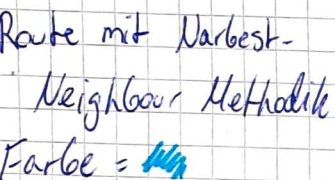 Route mit Narbest-
Neighbour Methodik
Farbe =